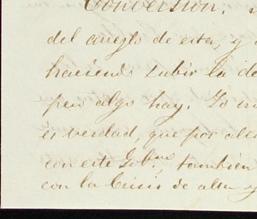 Conversion.
del arreglo de esta, y
haciendo subir la de
pero algo hay. Yo
es verdad, que por
con este Gobno. también
con la Crisis de alza y